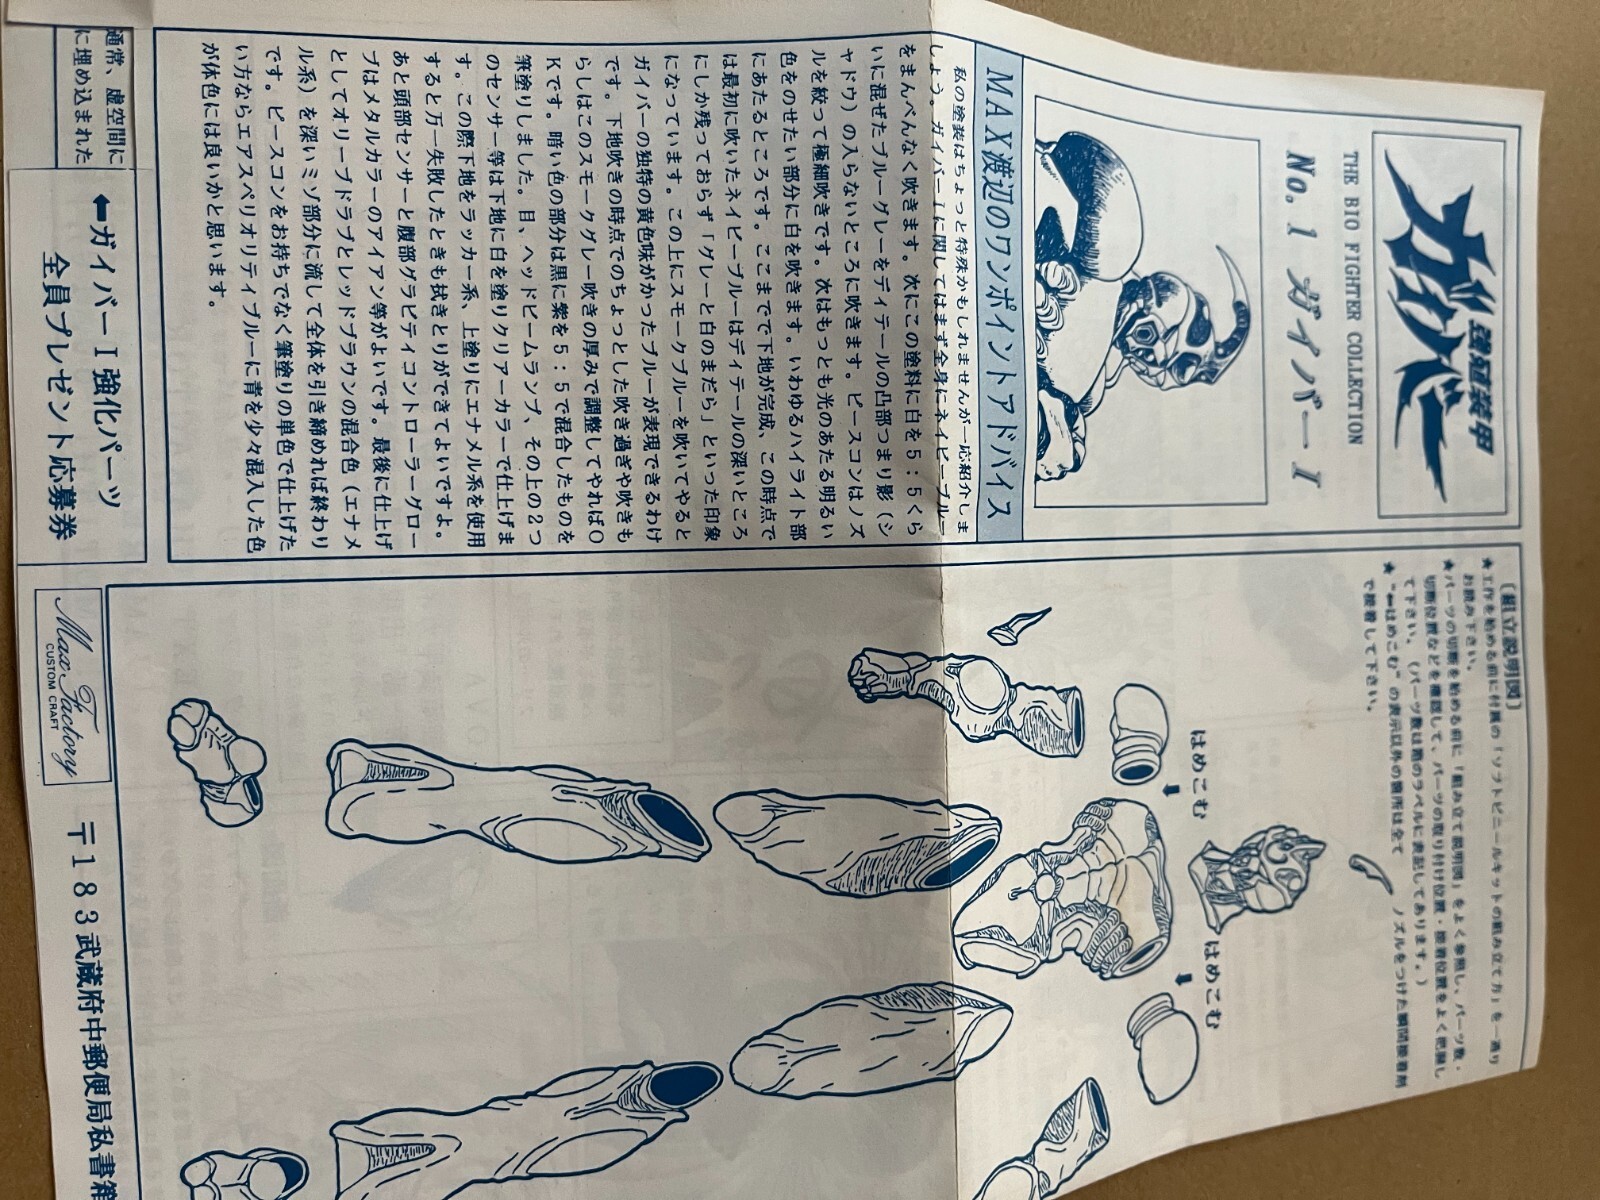 強殖装甲
ガイバー
THE BIO FIGHTER COLLECTION
No.1 ガイバーI
MAX渡辺のワンポイントアドバイス
私の塗装はちょっと特殊かもしれませんが一応紹介しま
しょう。ガイバーIに関してはまず全身にネイビーブルー
をまんべんなく吹きます。次にこの塗料に白を5:5くら
いに混ぜたブルーグレーをディテールの凸部つまり影(シ
ャドウ)の入らないところに吹きます。ピースコンはノズ
ルを絞って極細吹きです。次はもっとも光のあたる明るい
色をのせたい部分に白を吹きます。いわゆるハイライト部
にあたるところです。ここまでで下地が完成、この時点で
は最初に吹いたネイビーブルーはディテールの深いところ
にしか残っておらず「グレーと白のまだら」といった印象
になっています。この上にスモークブルーを吹いてやると
ガイバーの独特の黄色味がかったブルーが表現できるわけ
です。下地吹きの時点でのちょっとした吹き過ぎや吹きも
らしはこのスモークグレー吹きの厚みで調整してやればO
Kです。暗い色の部分は黒に紫を5:5で混合したものを
筆塗りしました。目、ヘッドビームランプ、その上の2つ
のセンサー等は下地に白を塗りクリアーカラーで仕上げま
す。この際下地をラッカー系、上塗りにエナメル系を使用
すると万一失敗したときも拭きとりができてよいですよ。
あと頭部センサーと腹部グラビティコントローラーグロー
ブはメタルカラーのアイアン等がよいです。最後に仕上げ
としてオリーブドラブとレッドブラウンの混合色(エナメ
ル系)を深いミゾ部分に流して全体を引き締めれば終わり
です。ピースコンをお持ちでなく筆塗りの単色で仕上げた
い方ならエアスペリオリティブルーに青を少々混入した色
が体色には良いかと思います。
通常、虚空間に
に埋め込まれた
⬅ガイバーI強化パーツ
全員プレゼント応募券
〔組立説明図〕
★工作を始める前に付属の「ソフトビニールキットの組み立て方」を一通り
お読み下さい。
★パーツの切断を始める前に「組み立て説明図」をよく参照し、パーツ数・
切断位置などを確認して、パーツの取り付け位置・接着位置をよく把握し
て下さい。(パーツ数は箱のラベルに表記してあります。)
★"⬅はめこむ"の表示以外の箇所は全て ノズルをつけた瞬間接着剤
で接着して下さい。
はめこむ
はめこむ
Max Factory
CUSTOM CRAFT
〒183武蔵府中郵便局私書箱